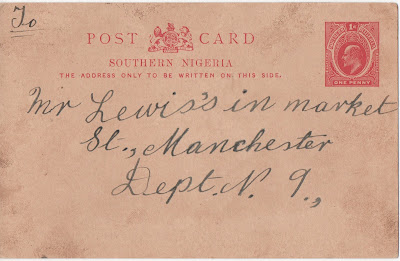 To
POST CARD
SOUTHERN NIGERIA
THE ADDRESS ONLY TO BE WRITTEN ON THIS SIDE.
1D
ONE PENNY
Mr Lewis's in market
St., Manchester
Dept. N. 9.,